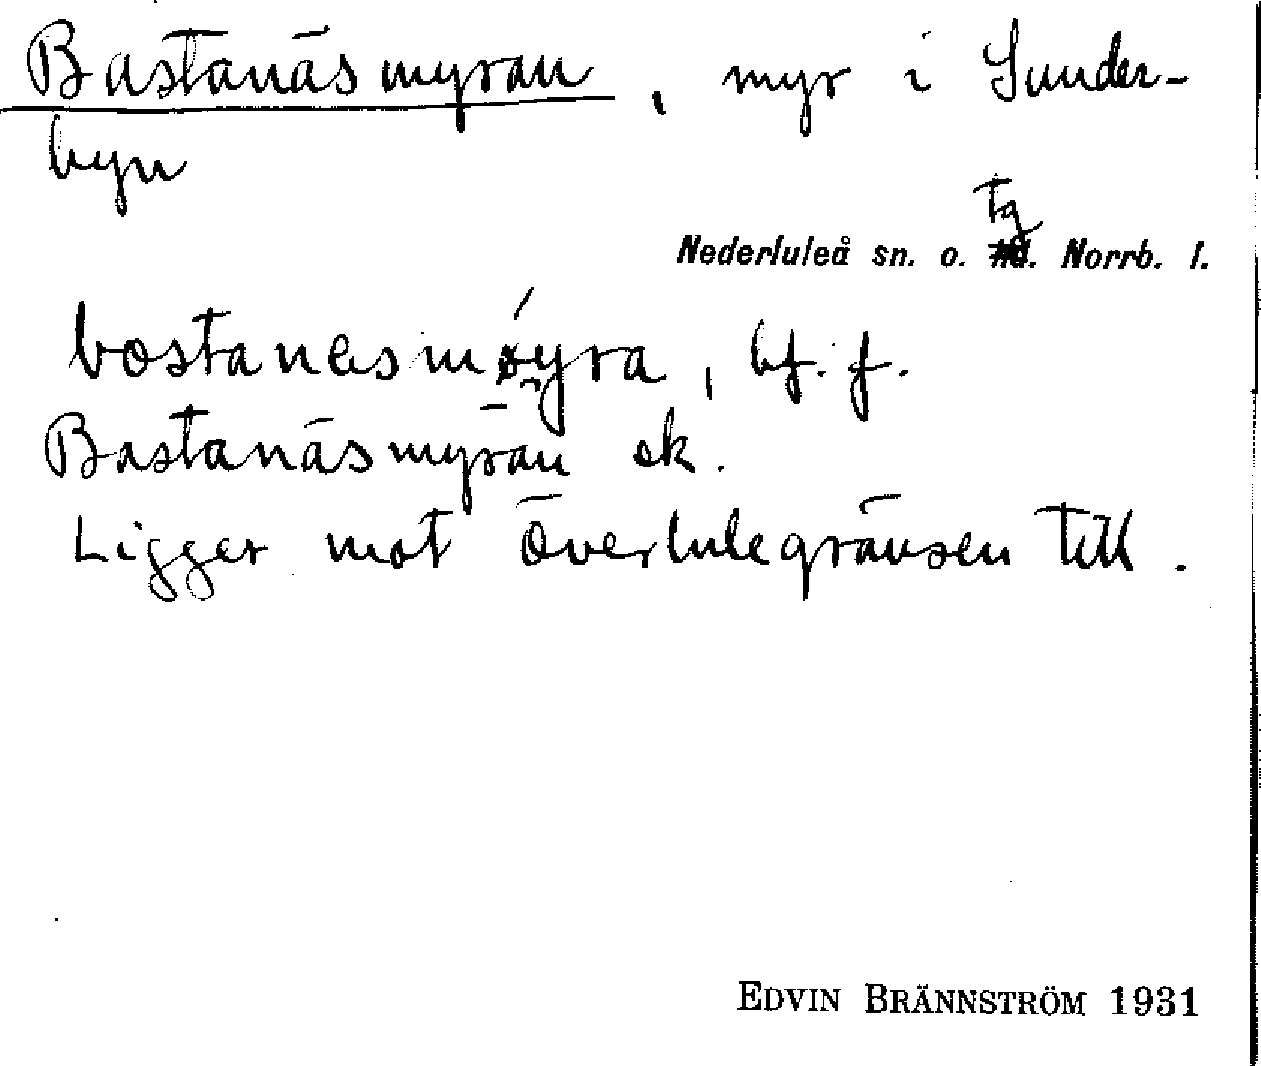 Bastanäsmyran, myr i Sunder-
byn
tg
Nederluleå sn. o. hd. Norrb. l.
bostanesmøyra, bf. f.
Bastanäsmyran ek.
Ligger mot överlulegränsen till.
EDVIN BRÄNNSTRÖM 1931